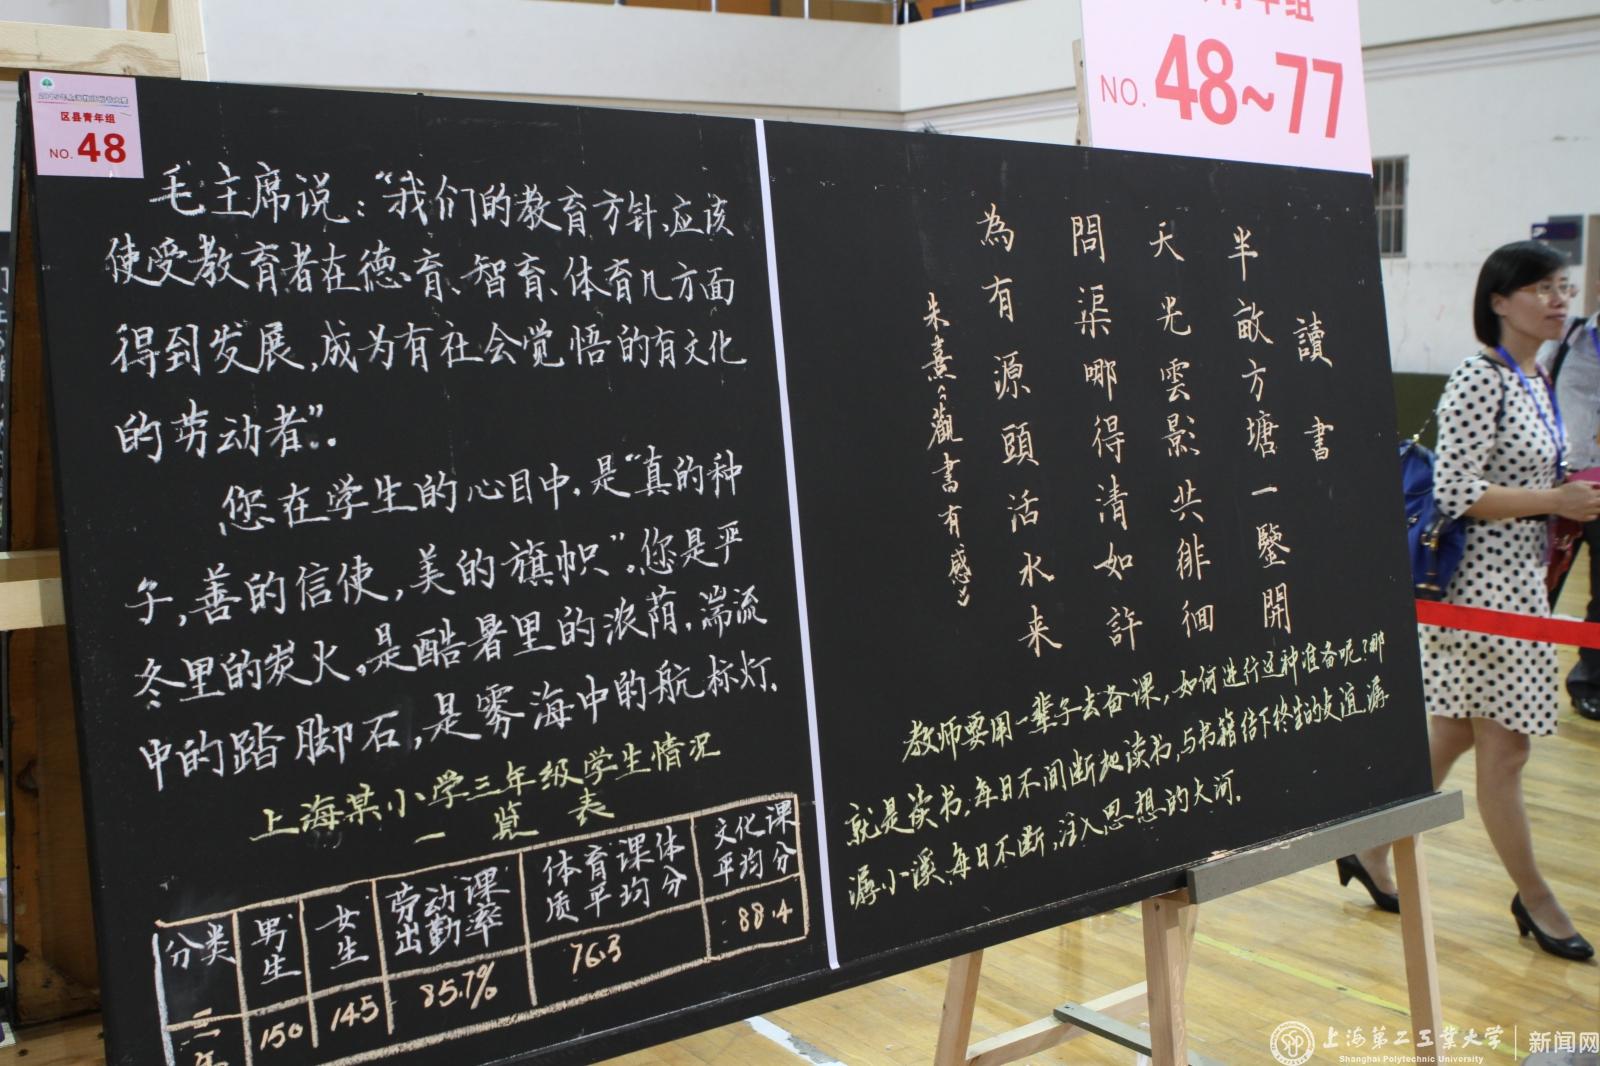 区县青年组
NO. 48
青年组
NO. 48~77
毛主席说：“我们的教育方针，应该
使受教育者在德育、智育、体育几方面
得到发展，成为有社会觉悟的有文化
的劳动者”。
您在学生的心目中，是“真的种
子，善的信使，美的旗帜”。您是严
冬里的炭火，是酷暑里的浓荫，湍流
中的踏脚石，是雾海中的航标灯。
上海某小学三年级学生情况
一览表
分类 男生 女生 劳动课出勤率 体育课体质平均分 文化课平均分
三年 150 145 85.7% 76.3 88.4
讀書
半畝方塘一鑒開
天光雲影共徘徊
問渠哪得清如許
為有源頭活水来
朱熹《觀書有感》
教师要用一辈子去备课，如何进行这种准备呢？那
就是读书，每日不间断地读书，与书籍结下终生的友谊。潺
潺小溪，每日不断，注入思想的大河。
上海第二工业大学
Shanghai Polytechnic University
新闻网